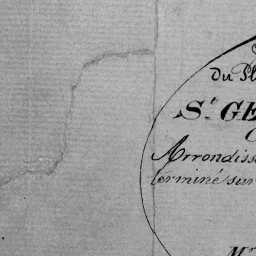 du Pl
St. GE
Arrondiss
terminé sur
Mr